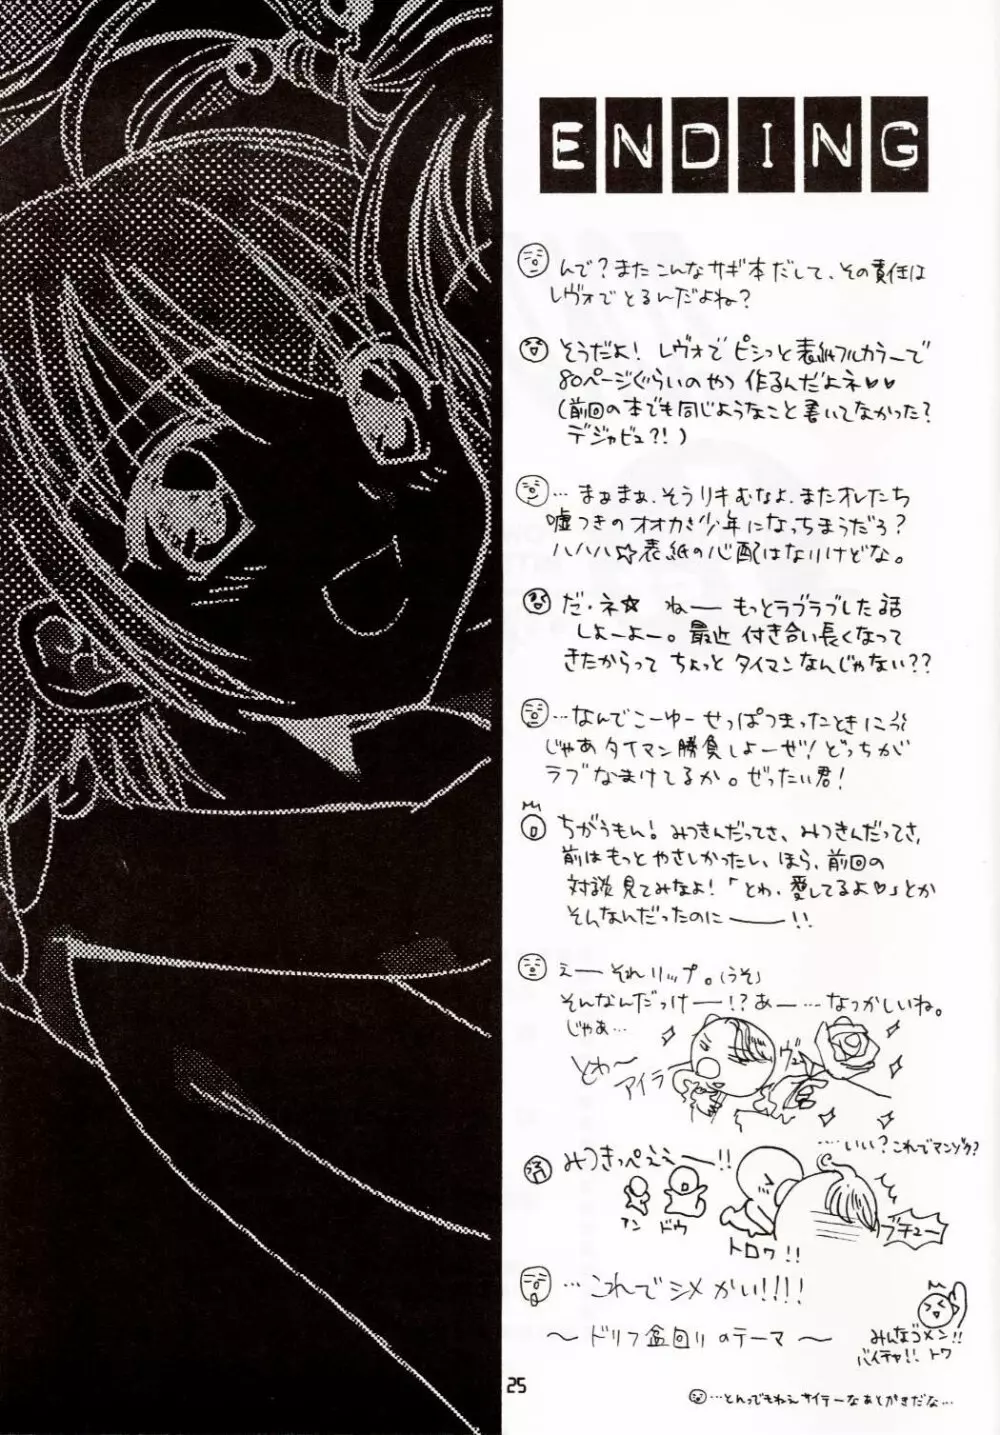 ENDING
んで?またこんなサギ本だして、その責任は
レヴォでとるんだよね?
そうだよ! レヴォでピシっと表紙フルカラーで
80ページぐらいのやつ作るんだよネ♥♥
(前回の本でも同じようなこと書いてなかった?
デジャビュ?!)
…まぁまぁ、そうリキむなよ、またオレたち
嘘つきのオオカミ少年になっちまうだろ?
ハハハ☆表紙の心配はないけどな。
だ・ネ☆ ねーもっとラブラブした話
しよーよー。最近付き合い長くなって
きたからって ちょっとタイマンなんじゃない??
…なんでこーゆーせっぱつまったときに
じゃあタイマン勝負しよーぜ!どっちが
ラブなまけてるか。ぜったい君!
ちがうもん!みつきんだってさ、みつきんだってさ、
前はもっとやさしかったし、ほら、前回の
対談見てみなよ!「とわ、愛してるよ♥」とか
そんなんだったのにー!!
えーそれリップ。(うそ)
そんなんだっけー!?あー…なつかしいね。
じゃあ…
とわ〜
アイラ
ヴュ
….いい?これでマンゾク?
済
みつきっぺえぇー!!
アン
ドウ
トロワ!!
ブチュー
…これでシメかい!!!!
〜ドリフ盆回りのテーマ〜
みんなゴメン!!
バイチャ!! トワ
25
…とんでもねえサイテーなあとがきだな…